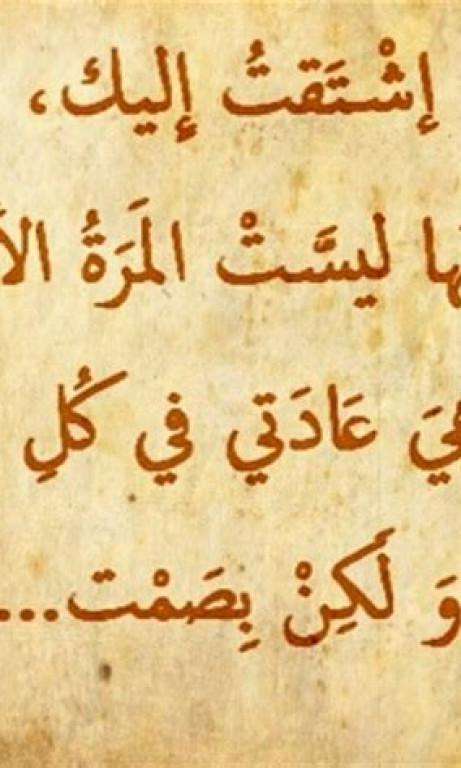 إشْتَقتُ إليك،
ليسَّتْ المَرَةُ
عَادَتي في كُلِ
وَ لَكِنْ بِصَمْت...